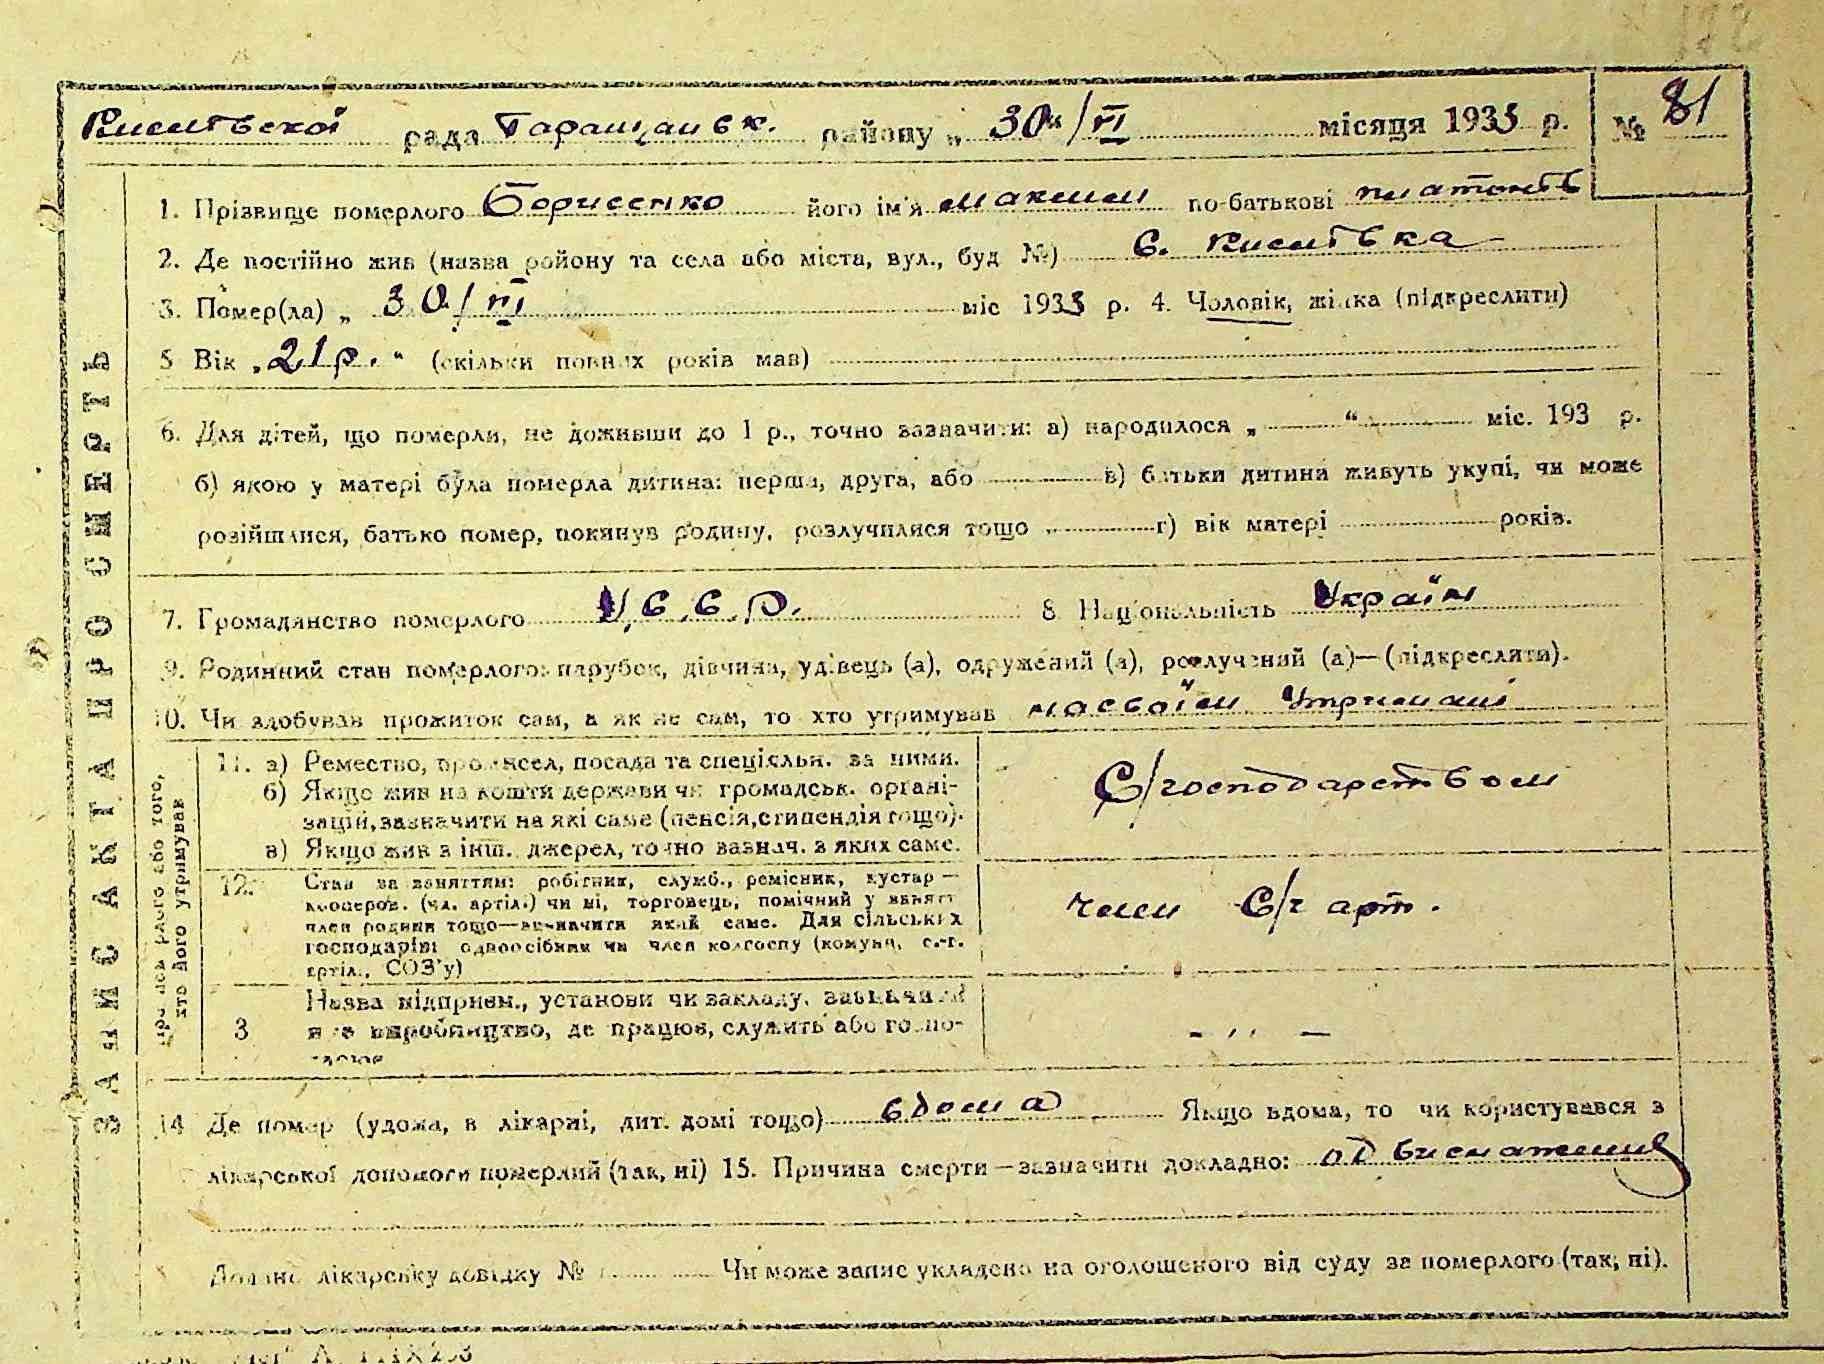 Кислівської рада Таращанськ. району „ 30 “/VI місяця 1933 р. № 81
1. Прізвище померлого Борисенко його ім'я Максим по-батькові Платонів
2. Де постійно жив (назва району та села або міста, вул., буд №) С. Кислівка
3. Помер(ла) „ 30/VI міс 1933 р. 4. Чоловік, жінка (підкреслити)
5 Вік „ 21 р. “ (скільки повних років мав)
6. Для дітей, що померли, не доживши до 1 р., точно зазначити: а) народилося „ “ міс. 193 р.
б) якою у матері була померла дитина: перша, друга, або в) батьки дитини живуть укупі, чи може
розійшлися, батько помер, покинув родину, розлучилися тощо г) вік матері років.
7. Громадянство померлого У.С.С.Р. 8 Національність Україн
9. Родинний стан померлого: парубок, дівчина, удівець (а), одружений (а), розлучений (а)—(підкреслити).
10. Чи здобував прожиток сам, а як не сам, то хто утримував на своїм утримані
ЗАПИС АКТА ПРО СМЕРТЬ
про померлого або того,
хто його утримував
11. а) Ремество, промисел, посада та спеціяльн. за ними.
б) Якщо жив на кошти держави чи громадськ. органі-
зацій, зазначити на які саме (пенсія, стипендія тощо).
в) Якщо жив з інш. джерел, точно зазнач. з яких саме.
С/господарством
12. Стан за заняттям: робітник, служб., ремісник, кустар —
кооперов. (чл. артіл.) чи ні, торговець, помічний у занятт
член родини тощо—визначити який саме. Для сільських
господарів: одноосібник чи член колгоспу (комуни, с.-г.
артіл., СОЗ'у)
член С/г арт.
3 Назва підприєм., установи чи закладу, зазначаючи
яке виробництво, де працює, служить або госпо-
– ,, –
14 Де помер (удома, в лікарні, дит. домі тощо) вдома Якщо вдома, то чи користувався з
лікарської допомоги померлий (так, ні) 15. Причина смерти — зазначити докладно: од виснаження
Додано лікарську довідку № Чи може запис укладено на оголошеного від суду за померлого (так, ні).